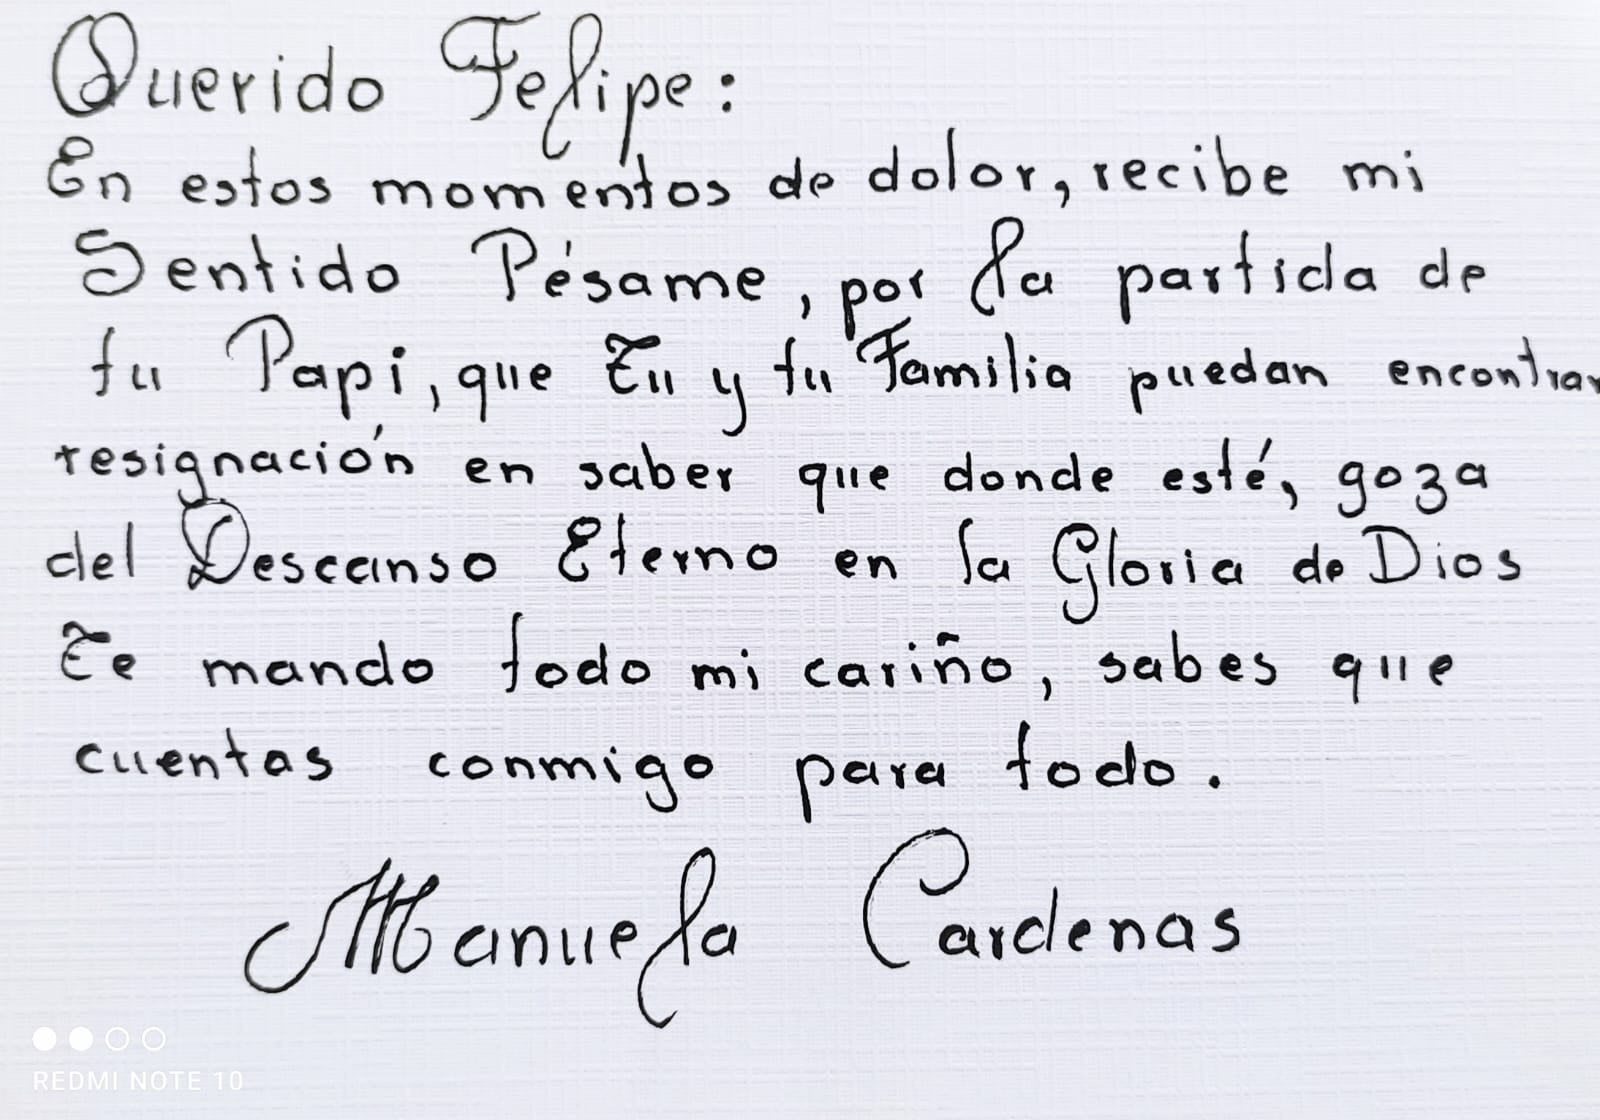 Querido Felipe:
En estos momentos de dolor, recibe mi
Sentido Pésame, por la partida de
tu Papi, que Tu y tu Familia puedan encontrar
resignación en saber que donde esté, goza
del Descanso Eterno en la Gloria de Dios
Te mando todo mi cariño, sabes que
cuentas conmigo para todo.
Manuela Cardenas
REDMI NOTE 10